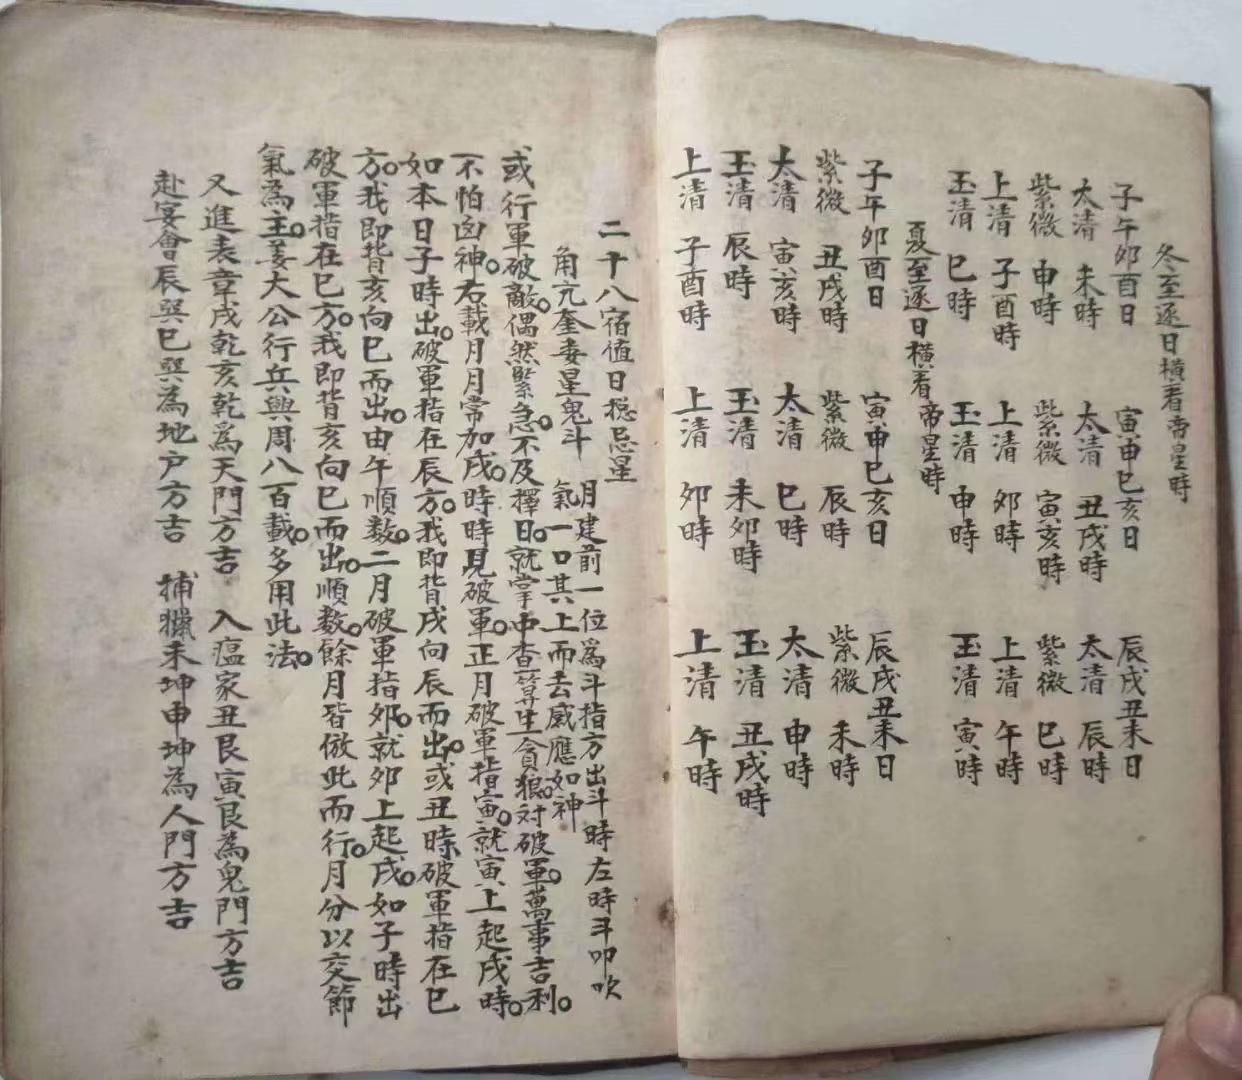 冬至逐日橫看帝星時
子午卯酉日 寅申巳亥日 辰戌丑未日
太清 未時 太清 丑戌時 太清 辰時
紫微 申時 紫微 寅亥時 紫微 巳時
上清 子酉時 上清 卯時 上清 午時
玉清 巳時 玉清 申時 玉清 寅時
夏至逐日橫看帝星時
子午卯酉日 寅申巳亥日 辰戌丑未日
紫微 丑戌時 紫微 辰時 紫微 未時
太清 寅亥時 太清 巳時 太清 申時
玉清 辰時 玉清 未卯時 玉清 丑戌時
上清 子酉時 上清 卯時 上清 午時
二十八宿值日捴忌星
角亢奎婁星鬼斗
月建前一位為斗指方出斗時左時斗叩吹
氣一口其上而去感應如神
或行軍破敵。偶然緊急。不及擇日。就掌中查算生貪狼对破軍。萬事吉利。
不怕凶神。右載月月常加戌。時時見破軍。正月破軍指寅。就寅上起戌時。
如本日子時出。破軍指在辰方。我即背戌向辰而出。或丑時破軍指在巳
方。我即背亥向巳而出。由午順數。二月破軍指卯。就卯上起戌。如子時出
破軍指在巳方。我即背亥向巳而出。順数。餘月皆倣此而行。月分以交節
氣為主。姜太公行兵興周八百載。多用此法。
又進表章戌乾亥乾為天門方吉 入瘟家丑艮寅艮為鬼門方吉
赴宴會辰巽巳巽為地户方吉 捕獵未坤申坤為人門方吉